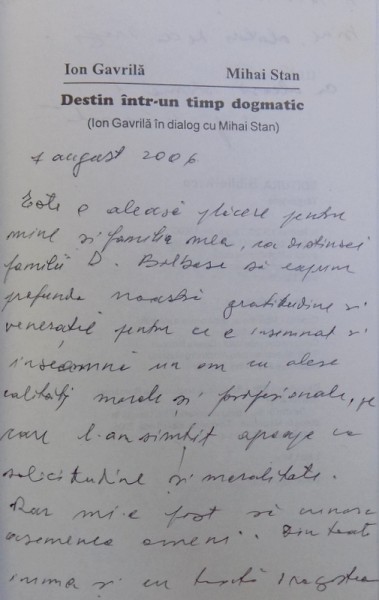 Ion Gavrilă Mihai Stan
Destin într-un timp dogmatic
(Ion Gavrilă în dialog cu Mihai Stan)
1 august 2006
Este o aleasă plăcere pentru
mine și familia mea, ca distinsei
familii D. Bolboșe să expun
profunda noastră gratitudine și
venerație pentru ce e însemnat și
înseamnă un om cu alese
calități morale și profesionale, pe
care l-am simțit aproape cu
solicitudine și moralitate.
Rar mi-e fost să cunosc
asemenea oameni. Din toată
inima și cu toată dragostea